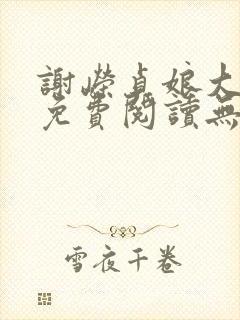 謝嶸貞娘大
免費閱讀無
雪夜千卷